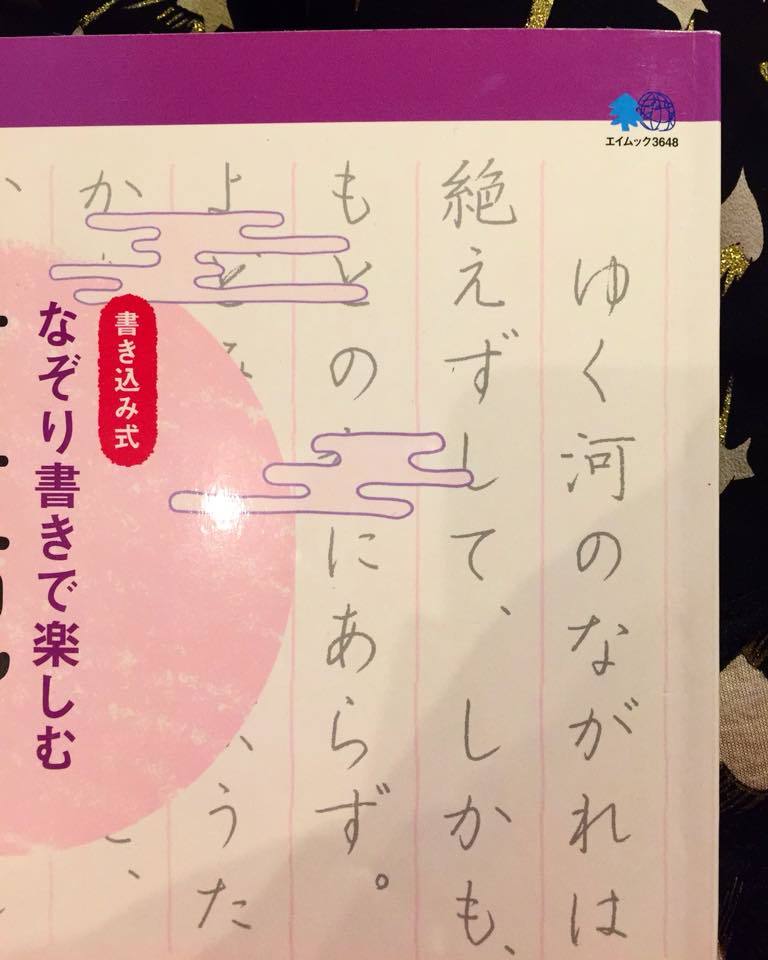 エイムック3648
ゆく河のながれは
絶えずして、しかも、
もとの にあらず。
よどみ うた
か
書き込み式
なぞり書きで楽しむ